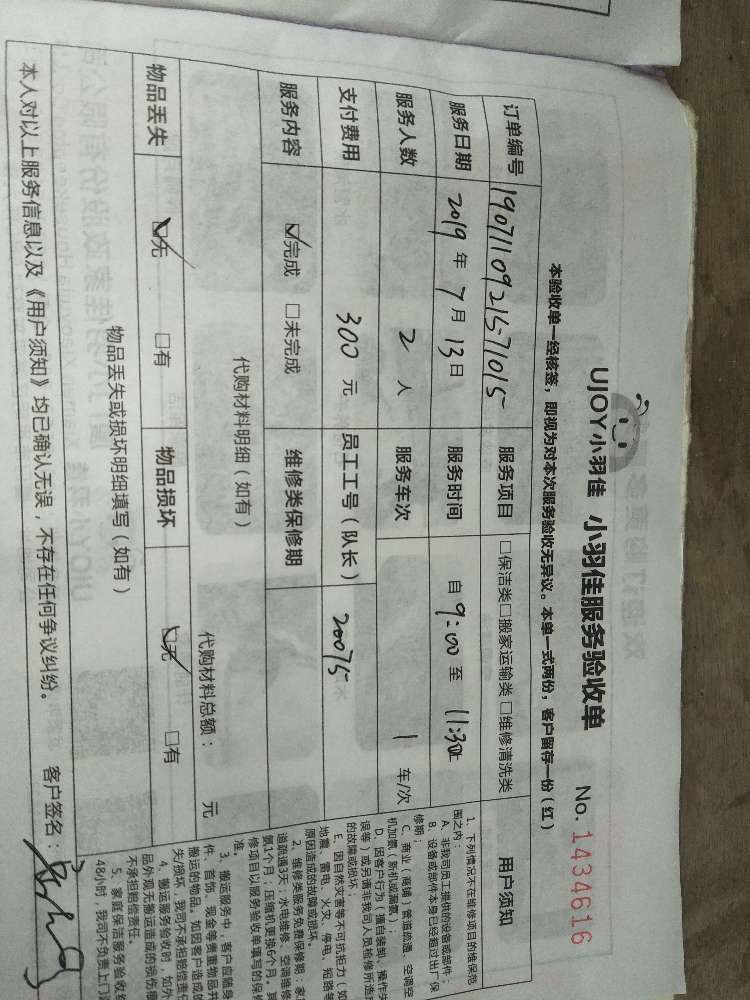 UJOY小羽佳 小羽佳服务验收单 No. 1434616
本验收单一经核签，即视为对本次服务验收无异议。本单一式两份，客户留存一份（红）
订单编号 1907110921571015 服务项目 □保洁类□搬家运输类 □维修清洗类
服务日期 2019 年 7 月 13 日 服务时间 自 9:00 至 11:30止
服务人数 2 人 服务车次 1 车/次
支付费用 300 元 员工工号（队长） 20075
服务内容 ☑完成 □未完成 维修类保修期
代购材料明细（如有）
代购材料总额： 元
物品丢失 ☑无 □有 物品损坏 ☑无 □有
物品丢失或损坏明细填写（如有）
本人对以上服务信息以及《用户须知》均已确认无误，不存在任何争议纠纷。 客户签名：
用户须知
1、下列情况不在维修项目的维保范
围之内：
A、非我司员工提供的设备或部件；
B、设备或部件本身已经超过出厂保
修期；
C、商业（商铺）管道疏通、空调空
机加氨，新机或漏氨）；
D、因客户行为（擅自装卸、操作失
误等）或另请非我司人员检修所造
的故障或损坏
E、因自然灾害等不可抗拒力（如
地震、雷电、火灾、停电、短路等
原因造成的故障或损坏。
2、维修类服务免费保修期：家
道疏通3天；水电维修、空调维修
氨1个月；压缩机更换6个月。其
修项目以服务验收单填写的保修
准。
3、搬运服务中，客户应随身
件、首饰、现金等贵重物品并
搬运的物品。如因客户造成的
失/损坏，我司不承担赔偿责任
4、搬运服务验收时，如外
品外观无搬运造成的损伤痕
不承担赔偿责任。
5、家庭保洁服务验收
48小时，我司不负责上门